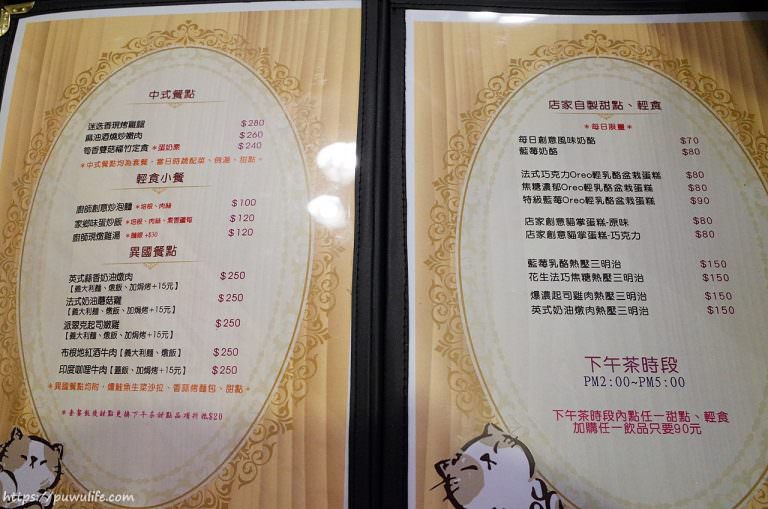 中式餐點
迷迭香現烤雞腿 $280
麻油酒燒炒嫩肉 $260
筍香雙菇福竹定食 *蛋奶素 $240
*中式餐點均為套餐，當日時蔬配菜、例湯、甜點。
輕食小餐
廚師創意炒泡麵 *培根、肉絲 $100
家鄉味蛋炒飯 *培根、肉絲、素香蘆筍 $120
廚師現燉雞湯 *麵線+$30 $120
異國餐點
英式蒜香奶油燉肉 $250
【義大利麵、燉飯、加焗烤+15元】
法式奶油蘑菇雞 $250
【義大利麵、燉飯、加焗烤+15元】
派翠克起司嫩雞 $250
【義大利麵、燉飯、加焗烤+15元】
布根地紅酒牛肉【義大利麵、燉飯】 $250
印度咖哩牛肉【蓋飯、加焗烤+15元】 $250
*異國餐點均附，燻鮭魚生菜沙拉、香蒜烤麵包、甜點。
*套餐飯後甜點更換下午茶甜點品項折抵$20
店家自製甜點、輕食
*每日限量*
每日創意風味奶酪 $70
藍莓奶酪 $80
法式巧克力Oreo輕乳酪盆栽蛋糕 $80
焦糖濃郁Oreo輕乳酪盆栽蛋糕 $80
特級藍莓Oreo輕乳酪盆栽蛋糕 $90
店家創意貓掌蛋糕-原味 $80
店家創意貓掌蛋糕-巧克力 $80
藍莓乳酪熱壓三明治 $150
花生法巧焦糖熱壓三明治 $150
爆濃起司雞肉熱壓三明治 $150
英式奶油燉肉熱壓三明治 $150
下午茶時段
PM2:00~PM5:00
下午茶時段內點任一甜點、輕食
加購任一飲品只要90元
https://puwulife.com